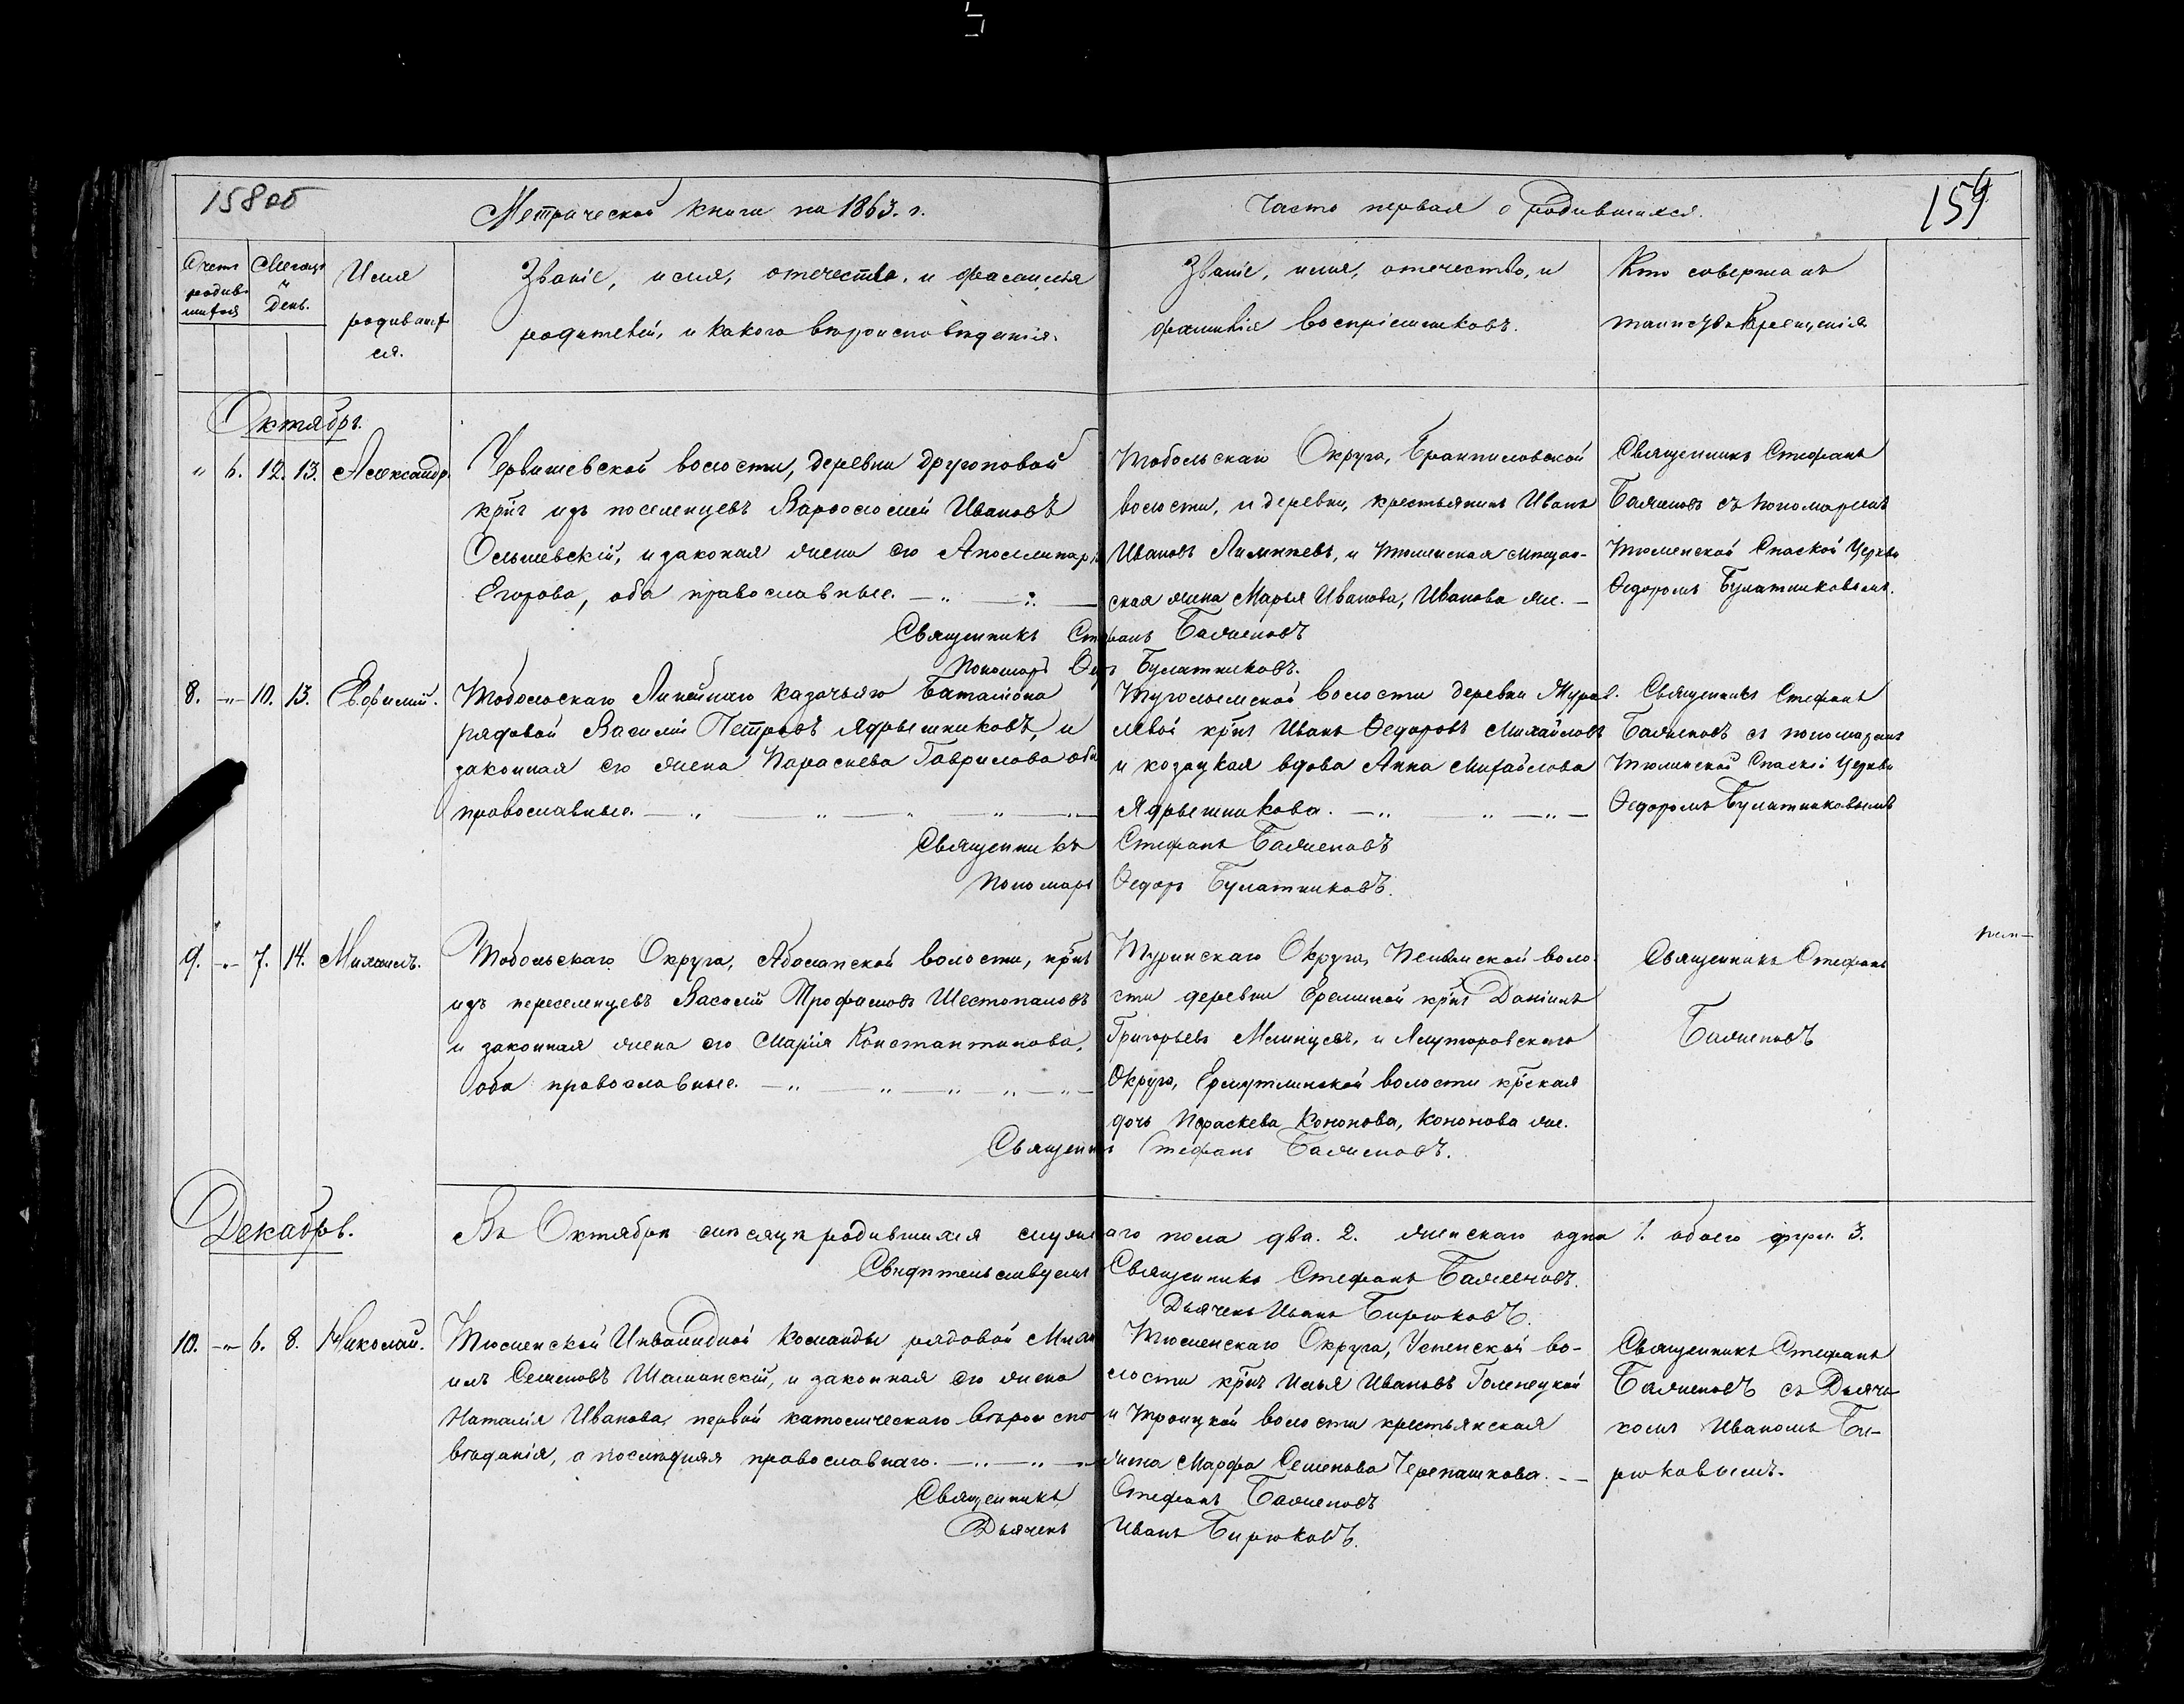 158об
159
Метрической книги на 1863. г.
Часть первая о родившихся.
Счетъ родившихся
Месяцъ и День.
Имя родившихся.
Званіе, имя, отечество, и фамилія
родителей, и какого вѣроисповѣданія.
Званіе, имя, отечество, и
фамилія воспріемниковъ.
Кто совершалъ
таинство крещенія
Октябрь.
" 6. 12. 13. Александр.
Червишевской волости, деревни Другоновой
крнъ изъ поселенцевъ Варфоломей Ивановъ
Ольшевскій, и законая жена его Аполлинарія
Егорова, оба православные.
Тобольскаго Округа, Бронниковской
волости, и деревни, крестьянинъ Иванъ
Ивановъ, и Тюменская мещан-
ская жена Марья Иванова, Иванова же.
Священникъ Стефанъ
Баженовъ съ пономаремъ
Тюменской Спаской Церкви
Ѳедоромъ Булатниковымъ.
Священникъ Стефанъ Баженовъ
Пономарь Ѳедоръ Булатниковъ.
8. -"- 10. 13. Евфимій.
Тобольскаго Линейнаго казачьяго баталіона
рядовой Василій Петровъ Ядрышниковъ, и
законная его жена Параскева Гаврилова оба
православные.
Тугулымской волости деревни Журав-
левой крнъ Иванъ Ѳедоровъ Михайловъ
и козацкая вдова Анна Михайлова
Ядрышникова.
Священникъ Стефанъ
Баженовъ съ пономаремъ
Тюменской Спаской Церкви
Ѳедоромъ Булатниковымъ
Священникъ Стефанъ Баженовъ
Пономарь Ѳедоръ Булатниковъ.
9. -"- 7. 14. Михаилъ.
Тобольскаго Округа, Абалатской волости, крнъ
изъ переселенцевъ Василій Трофимовъ Шестопаловъ
и законная жена его Марія Константинова,
оба православные.
Туринскаго Округа, воло-
сти деревни крнъ Даніилъ
Григорьевъ, и Ялуторовскаго
Округа, Емуртлинской волости крская
дочь Параскева Кононова, Кононова же.
Священникъ Стефанъ
Баженовъ
Священникъ Стефанъ Баженовъ.
Декабрь.
Въ Октябрѣ мѣсяцѣ родившихся мужескаго пола два. 2. женскаго одна 1. обоего 3.
Свидѣтельствуемъ Священникъ Стефанъ Баженовъ.
Дьячекъ Иванъ Бирюковъ.
10. -"- 6. 8. Николай.
Тюменской Инвалидной Команды рядовой Миха-
илъ Семеновъ Шаманскій, и законная его жена
Наталія Иванова, первой католическаго вѣроиспо-
вѣданія, а послѣдняя православнаго.
Тюменскаго Округа, Успенской во-
лости крнъ Илья Ивановъ Голенецкой
и Троицкой волости крестьянская
жена Марфа Семенова Черепашкова.
Священникъ Стефанъ
Баженовъ съ Дьяч-
комъ Иваномъ Би-
рюковымъ.
Священникъ Стефанъ Баженовъ
Дьячекъ Иванъ Бирюковъ.